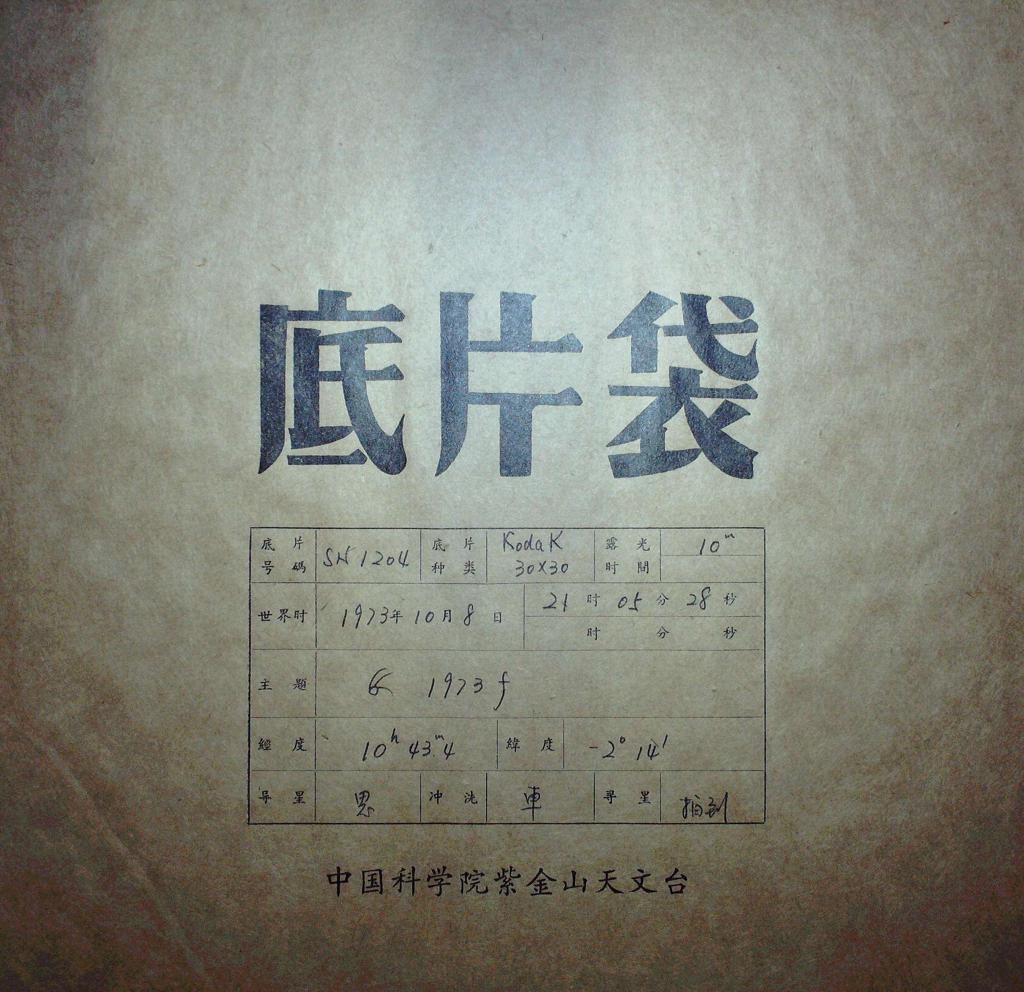 底片袋
底片号碼 SH 1204 底片种类 Kodak 30×30 露光时間 10m
世界时 1973年10月8日 21时05分28秒
时 分 秒
主題 1973f
經度 10h 43m4 緯度 -2° 14'
导星 思 冲洗 車 寻星 拍到
中国科学院紫金山天文台